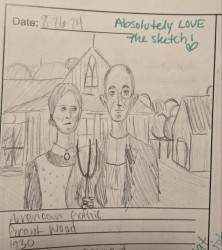 Date: 8-26-24
Absolutely LOVE
the sketch!
American Gothic
Grant Wood
1930